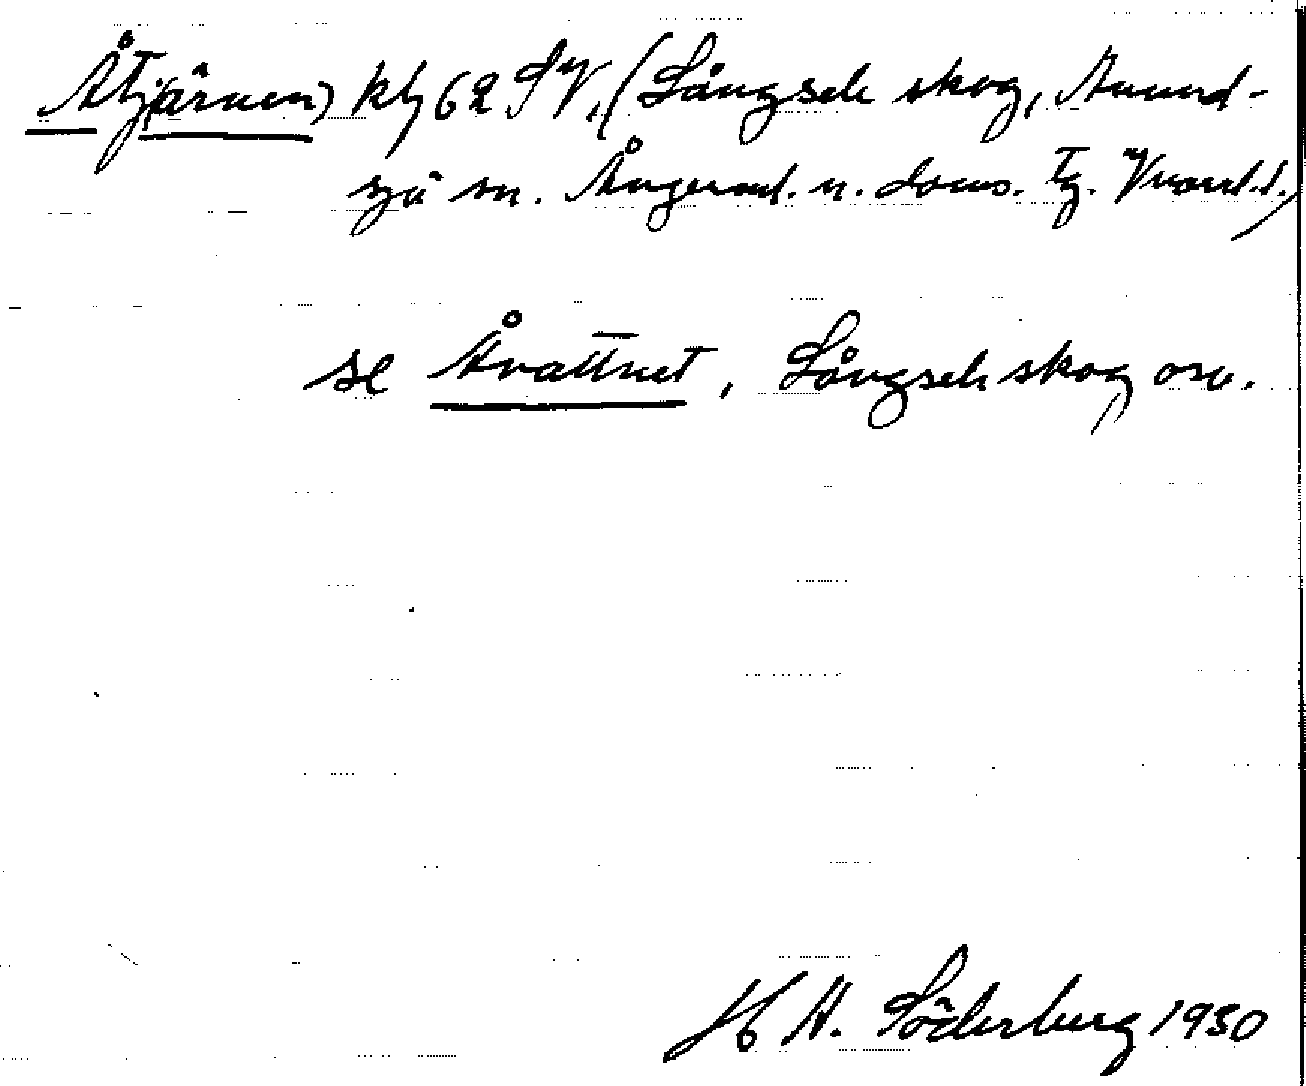 Åtjärnen) kbl 62 SV, (Långsele skog, Anund-
sjö sn. Ångerml. n. doms. Tg. Vnorrl. l.)
se Åvattnet, Långsele skog osv.
H A. Söderberg 1930